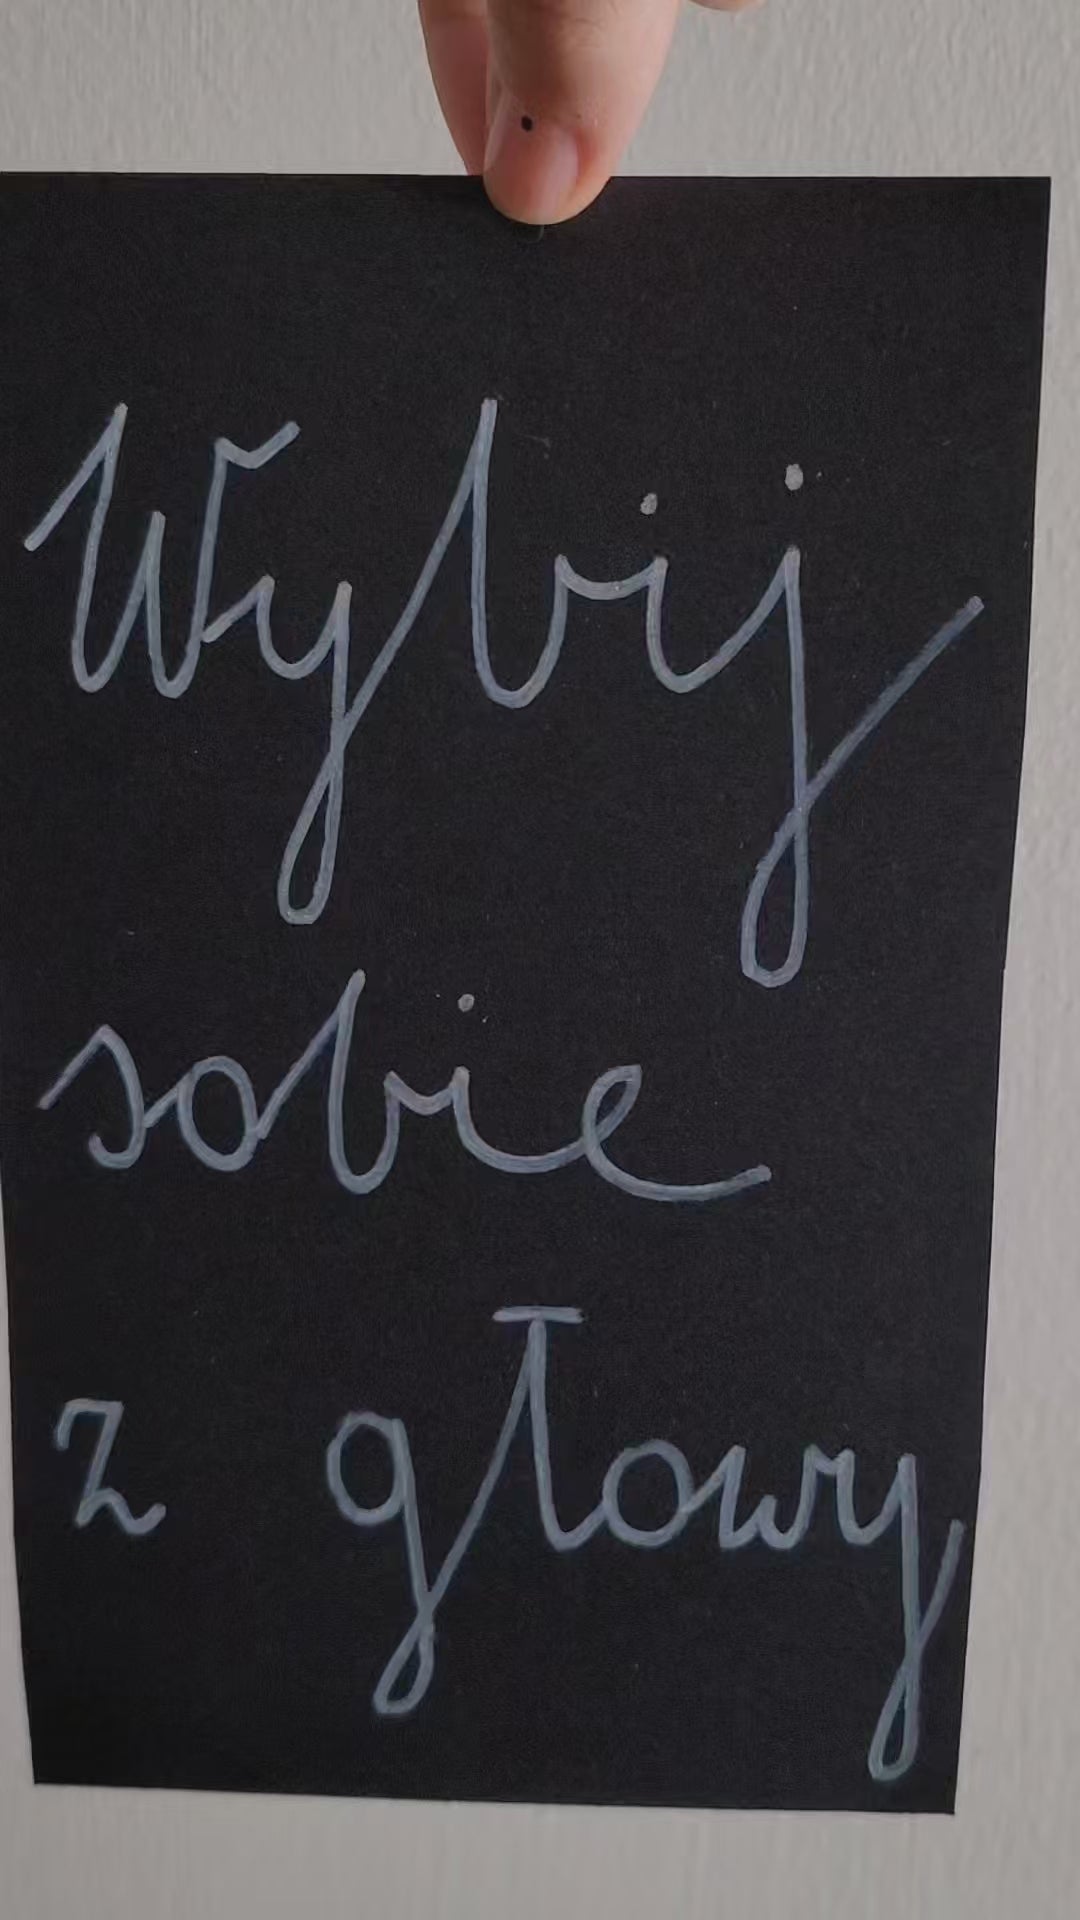 Wybij
sobie
z głowy